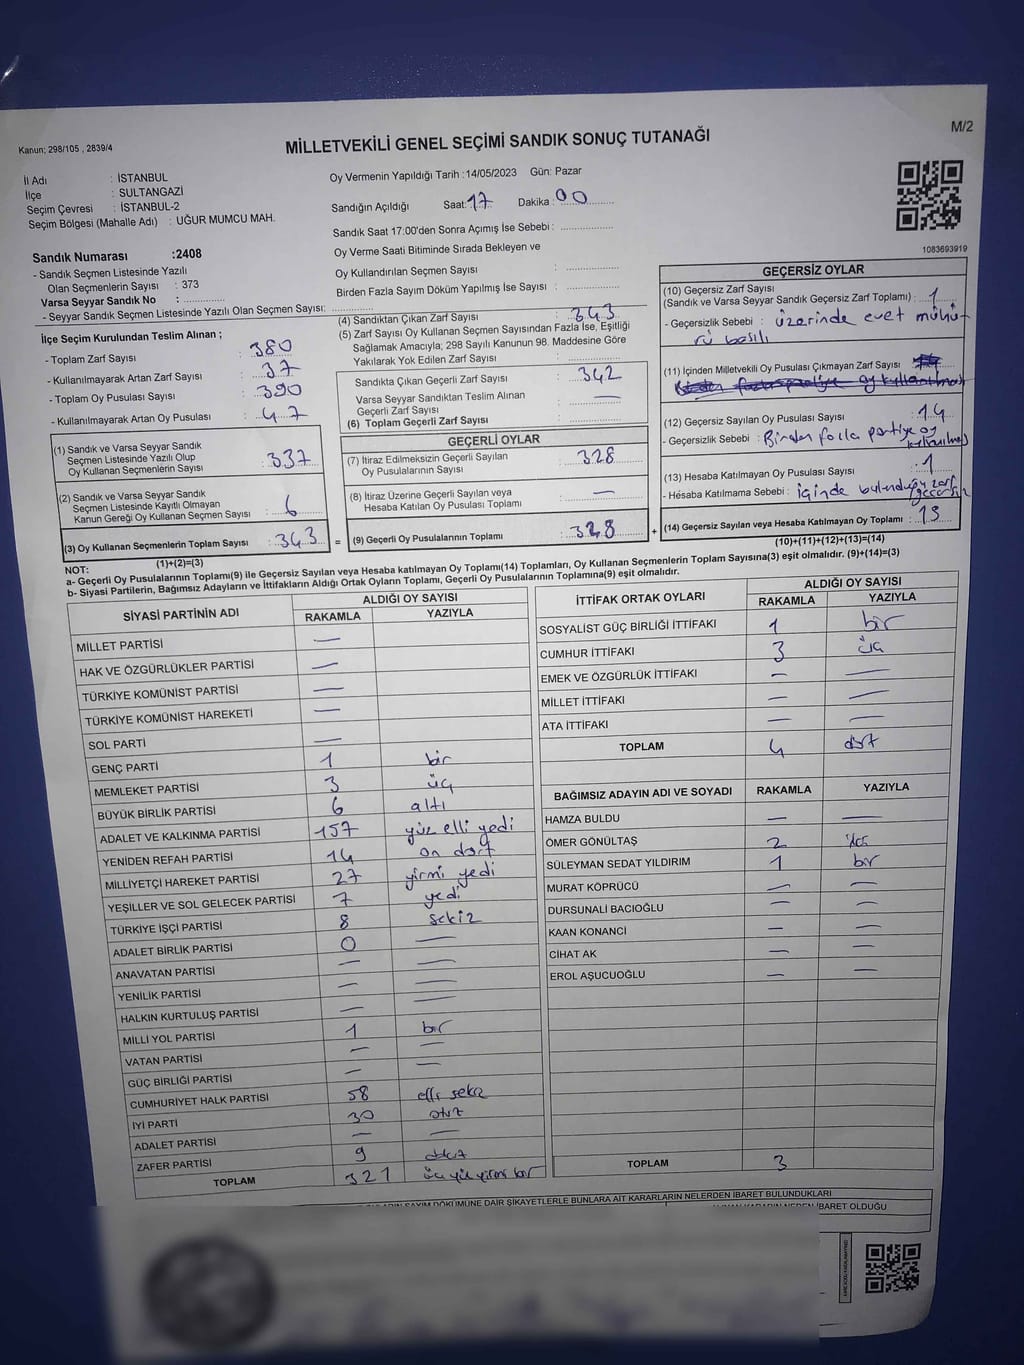 Kanun; 298/105 , 2839/4
M/2
MİLLETVEKİLİ GENEL SEÇİMİ SANDIK SONUÇ TUTANAĞI
İl Adı : İSTANBUL
İlçe : SULTANGAZİ
Seçim Çevresi : İSTANBUL-2
Seçim Bölgesi (Mahalle Adı) : UĞUR MUMCU MAH.
Sandık Numarası :2408
- Sandık Seçmen Listesinde Yazılı
Olan Seçmenlerin Sayısı : 373
Varsa Seyyar Sandık No : ..............
- Seyyar Sandık Seçmen Listesinde Yazılı Olan Seçmen Sayısı: ..............
Oy Vermenin Yapıldığı Tarih :14/05/2023 Gün: Pazar
Sandığın Açıldığı Saat: 17 Dakika : 00
Sandık Saat 17:00'den Sonra Açımış İse Sebebi : ..............
Oy Verme Saati Bitiminde Sırada Bekleyen ve
Oy Kullandırılan Seçmen Sayısı : ..............
Birden Fazla Sayım Döküm Yapılmış İse Sayısı : ..............
1083693919
İlçe Seçim Kurulundan Teslim Alınan ;
- Toplam Zarf Sayısı : 380
- Kullanılmayarak Artan Zarf Sayısı : 37
- Toplam Oy Pusulası Sayısı : 390
- Kullanılmayarak Artan Oy Pusulası : 47
(1) Sandık ve Varsa Seyyar Sandık
Seçmen Listesinde Yazılı Olup
Oy Kullanan Seçmenlerin Sayısı : 337
(2) Sandık ve Varsa Seyyar Sandık
Seçmen Listesinde Kayıtlı Olmayan
Kanun Gereği Oy Kullanan Seçmen Sayısı : 6
(3) Oy Kullanan Seçmenlerin Toplam Sayısı : 343
(1)+(2)=(3)
(4) Sandıktan Çıkan Zarf Sayısı : 343
(5) Zarf Sayısı Oy Kullanan Seçmen Sayısından Fazla İse, Eşitliği
Sağlamak Amacıyla; 298 Sayılı Kanunun 98. Maddesine Göre
Yakılarak Yok Edilen Zarf Sayısı : ..............
Sandıkta Çıkan Geçerli Zarf Sayısı : 342
Varsa Seyyar Sandıktan Teslim Alınan
Geçerli Zarf Sayısı : —
(6) Toplam Geçerli Zarf Sayısı : ..............
GEÇERLİ OYLAR
(7) İtiraz Edilmeksizin Geçerli Sayılan
Oy Pusulalarının Sayısı : 328
(8) İtiraz Üzerine Geçerli Sayılan veya
Hesaba Katılan Oy Pusulası Toplamı : —
= (9) Geçerli Oy Pusulalarının Toplamı : 328 +
GEÇERSİZ OYLAR
(10) Geçersiz Zarf Sayısı
(Sandık ve Varsa Seyyar Sandık Geçersiz Zarf Toplamı) : 1
- Geçersizlik Sebebi : üzerinde evet mühü
rü basılı
(11) İçinden Milletvekili Oy Pusulası Çıkmayan Zarf Sayısı
(12) Geçersiz Sayılan Oy Pusulası Sayısı : 14
- Geçersizlik Sebebi : Birden fazla partiye oy
(13) Hesaba Katılmayan Oy Pusulası Sayısı : 1
- Hesaba Katılmama Sebebi : içinde bulunduğu zarf
geçersiz
(14) Geçersiz Sayılan veya Hesaba Katılmayan Oy Toplamı :
(10)+(11)+(12)+(13)=(14)
NOT:
a- Geçerli Oy Pusulalarının Toplamı(9) ile Geçersiz Sayılan veya Hesaba katılmayan Oy Toplamı(14) Toplamları, Oy Kullanan Seçmenlerin Toplam Sayısına(3) eşit olmalıdır. (9)+(14)=(3)
b- Siyasi Partilerin, Bağımsız Adayların ve İttifakların Aldığı Ortak Oyların Toplamı, Geçerli Oy Pusulalarının Toplamına(9) eşit olmalıdır.
SİYASİ PARTİNİN ADI ALDIĞI OY SAYISI
RAKAMLA YAZIYLA
MİLLET PARTİSİ —
HAK VE ÖZGÜRLÜKLER PARTİSİ —
TÜRKİYE KOMÜNİST PARTİSİ —
TÜRKİYE KOMÜNİST HAREKETİ —
SOL PARTİ —
GENÇ PARTİ 1 bir
MEMLEKET PARTİSİ 3 üç
BÜYÜK BİRLİK PARTİSİ 6 altı
ADALET VE KALKINMA PARTİSİ 157 yüz elli yedi
YENİDEN REFAH PARTİSİ 14 on dört
MİLLİYETÇİ HAREKET PARTİSİ 27 yirmi yedi
YEŞİLLER VE SOL GELECEK PARTİSİ 7 yedi
TÜRKİYE İŞÇİ PARTİSİ 8 sekiz
ADALET BİRLİK PARTİSİ 0 —
ANAVATAN PARTİSİ — —
YENİLİK PARTİSİ — —
HALKIN KURTULUŞ PARTİSİ — —
MİLLİ YOL PARTİSİ 1 bir
VATAN PARTİSİ — —
GÜÇ BİRLİĞİ PARTİSİ — —
CUMHURİYET HALK PARTİSİ 58 elli sekiz
İYİ PARTİ 30 otuz
ADALET PARTİSİ — —
ZAFER PARTİSİ 9 dokuz
TOPLAM 321 üç yüz yirmi bir
İTTİFAK ORTAK OYLARI ALDIĞI OY SAYISI
RAKAMLA YAZIYLA
SOSYALİST GÜÇ BİRLİĞİ İTTİFAKI 1 bir
CUMHUR İTTİFAKI 3 üç
EMEK VE ÖZGÜRLÜK İTTİFAKI — —
MİLLET İTTİFAKI — —
ATA İTTİFAKI — —
TOPLAM 4 dört
BAĞIMSIZ ADAYIN ADI VE SOYADI RAKAMLA YAZIYLA
HAMZA BULDU — —
ÖMER GÖNÜLTAŞ 2 iki
SÜLEYMAN SEDAT YILDIRIM 1 bir
MURAT KÖPRÜCÜ — —
DURSUNALİ BACIOĞLU — —
KAAN KONANCİ — —
CİHAT AK — —
EROL AŞUCUOĞLU — —
TOPLAM 3
SAYIM DÖKÜMÜNE DAİR ŞİKAYETLERLE BUNLARA AİT KARARLARIN NELERDEN İBARET BULUNDUKLARI
İBARET OLDUĞU